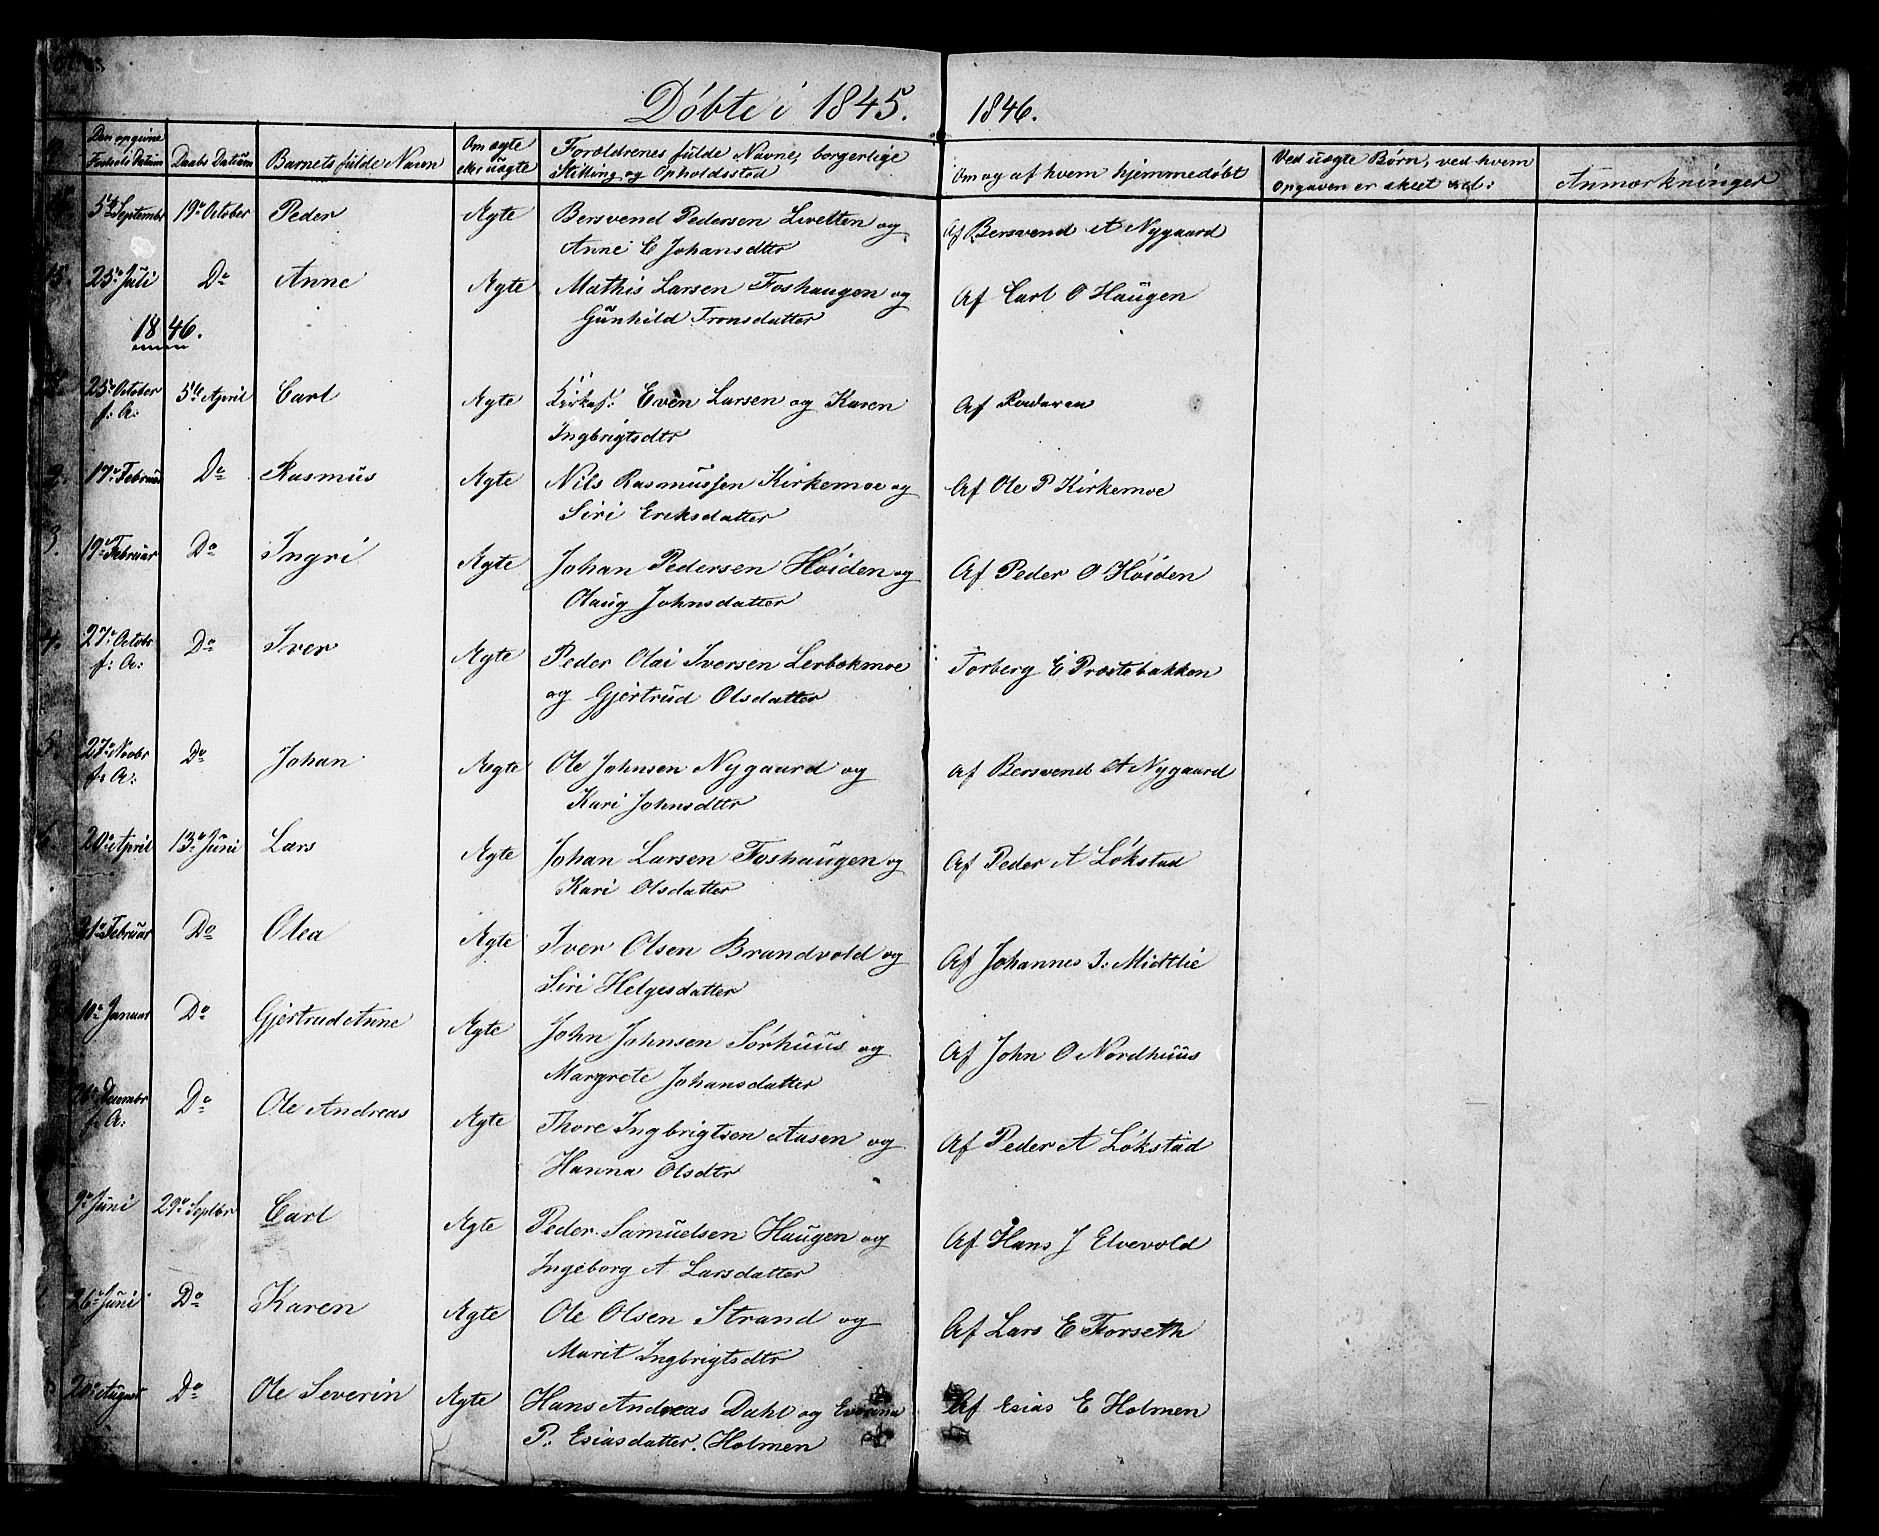 Døbte i 1845. 1846.
Den opgivne Fødsels Datum | Daabs Datum | Barnets fulde Navn | Om ægte eller uægte | Forældrenes fulde Navne, borgerlige Stilling og Opholdssted | Om og af hvem hjemmedøbt | Ved uægte Børn, ved hvem Opgaven er skeet | Anmærkninger
5te Septembr | 19de October | Peder | Ægte | Bersvend Pedersen Livelten og | Af Bersvend A Nygaard
Anne C Johansdttr
15. | 25de Juli | Do | Anne | Ægte | Mathis Larsen Foshaugen og | Af Carl O Haugen
Gunhild Tronsdatter
1846.
25de October | 5te April | Carl | Ægte | Kirkes: Even Larsen og Karen | Af Faderen
f: A: | Ingbrigtsdtr
2. | 17de Februar | Do | Rasmus | Ægte | Nils Rasmussen Kirkemoe og | Af Ole P Kirkemoe
Siri Eriksdatter
3. | 19de Februar | Do | Ingri | Ægte | Johan Pedersen Høiden og | Af Peder O Høiden
Olaug Johnsdatter
4. | 27de Octobr | Do | Iver | Ægte | Peder Olai Iversen Lerbekmoe | Torberg E Præstebakken
f: A: | og Gjertrud Olsdatter
5. | 27de Novbr | Do | Johan | Ægte | Ole Johnsen Nygaard og | Af Bersvend A Nygaard
f: A: | Kari Johnsdttr
6. | 20de April | 13de Juni | Lars | Ægte | Johan Larsen Foshaugen og | Af Peder A Løkstad
Kari Olsdatter
21de Februar | Do | Olea | Ægte | Iver Olsen Brandvold og | Af Johannes I: Midtlie
Siri Helgesdatter
10de Januar | Do | Gjertrud Anne | Ægte | John Johnsen Sørhuus og | Af John O Nordhuus
Margrete Johansdatter
26de Decembr | Do | Ole Andreas | Ægte | Thore Ingbrigtsen Aasen og | Af Peder A Løkstad
f: A: | Hanna Olsdtr
9de Juni | 29de Septbr | Carl | Ægte | Peder Samuelsen Haugen og | Af Hans J Elvevold
Ingeborg A Larsdatter
26de Juni | Do | Karen | Ægte | Ole Olsen Strand og | Af Lars E Forseth
Marit Ingbrigtsdtr
20de August | Do | Ole Severin | Ægte | Hans Andreas Dahl og | Af Esias E Holmen
P. Esiasdatter. Holmen